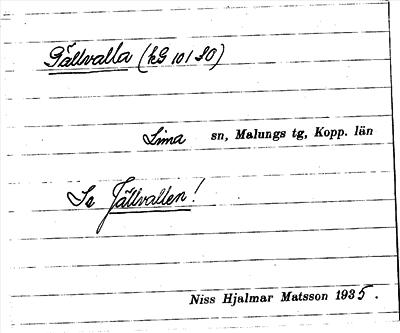 Gällvalla (kG 10180)
Lima sn, Malungs tg, Kopp. län
Se Jällvallen!
Niss Hjalmar Matsson 1935.